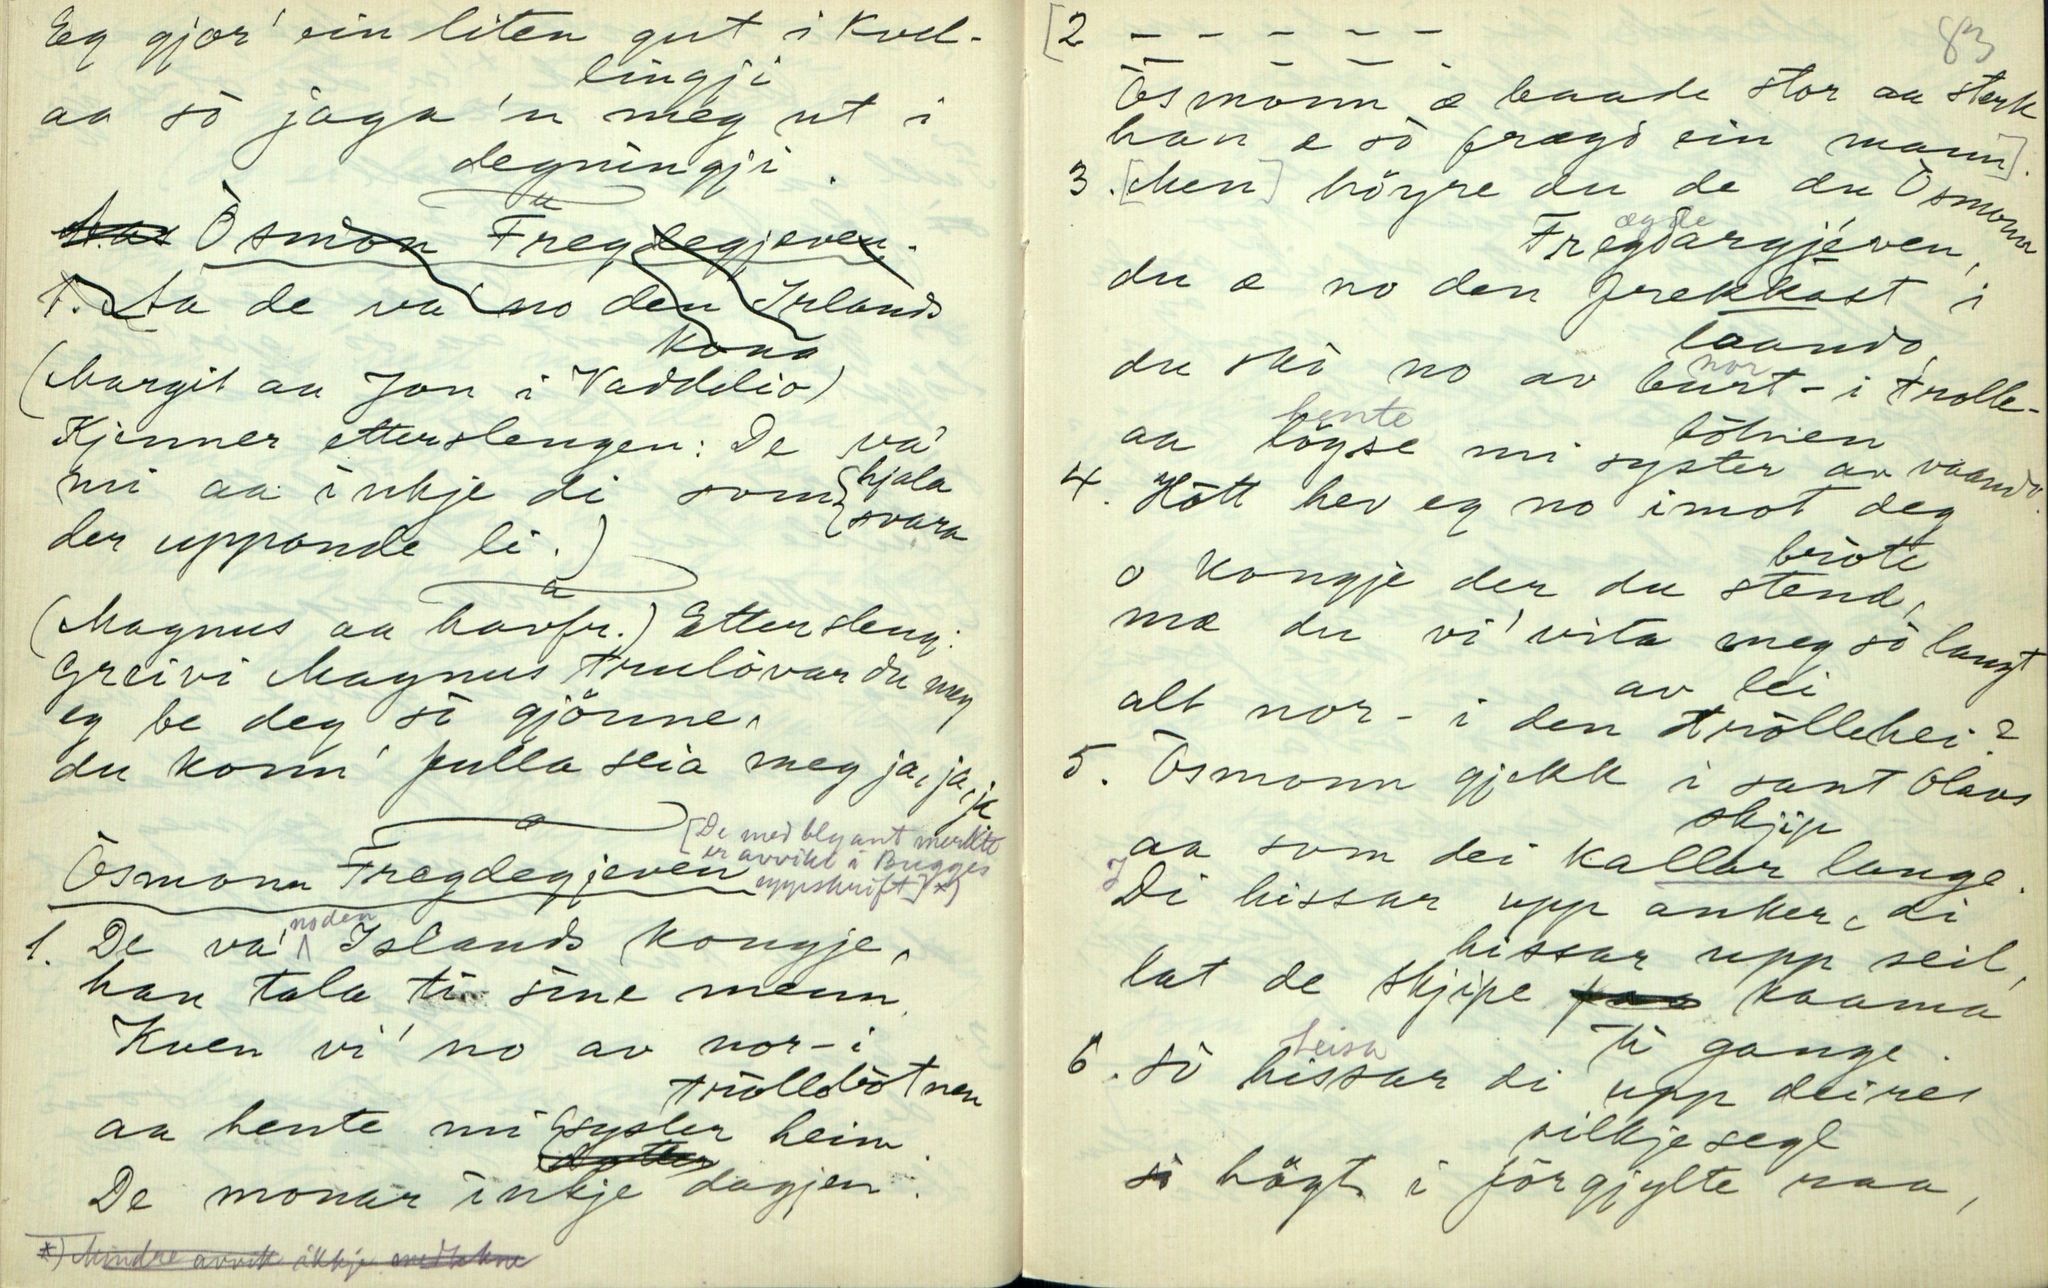 Eg gjor' ein liten gut i kvel-
lingji
aa sò jaga 'n meg ut i
degningji.
Òsmon Fregdegjeven.
1. Aa de va' no den Irlands
kona
(Margit aa Jon i Vaddelio)
Kjenner etterslengen: De va'
mi aa inkje di som {hjala
{svara
der uppande li.)
(Magnus aa havfr.) Etterslengj:
Greivi Magnus trulovar du meg
eg be deg sò gjönne,
du konn' fulla seia meg ja, ja, ja.
[De med blyant merkte
er avvikl i Bugges
uppskrift] *)
Òsmonn Fregdegjeven
no den
1. De va' Islands kongje,
han tala ti sine menn,
Kven vi' no av nor-i
tròllebòtnen
aa hente mi syster heim.
dotter
De monar inkje dagjen.
*) Mindre avvik ikkje medtekne
83
[2 – – – – –
– – –
Òsmonn æ baade stor aa sterk
han æ sò frægð ein mann].
3. [Men] höyre du de du Òsmonn
ægde
Fregdargjéven,
du æ no den frekkast i
laando,
nor
du skò no av burt-i trolle-
bòtnen
hente
aa löyse mi syster av vaando.
4. Hòtt hev eg no imot deg
bròte
o kongje der du stend,
mæ du vi' vita meg sò langt
av lei
alt nor-i den tròllehei?
5. Òsmonn gjekk i sant Olavs
skjip
aa som dei kallar lange.
Di hissar upp anker, di
hissar upp seil,
lat de skjipe kaama
ti gange.
heisa
6. sò hissar di upp deires
silkjesegl
sò högt i förgjylte raa,